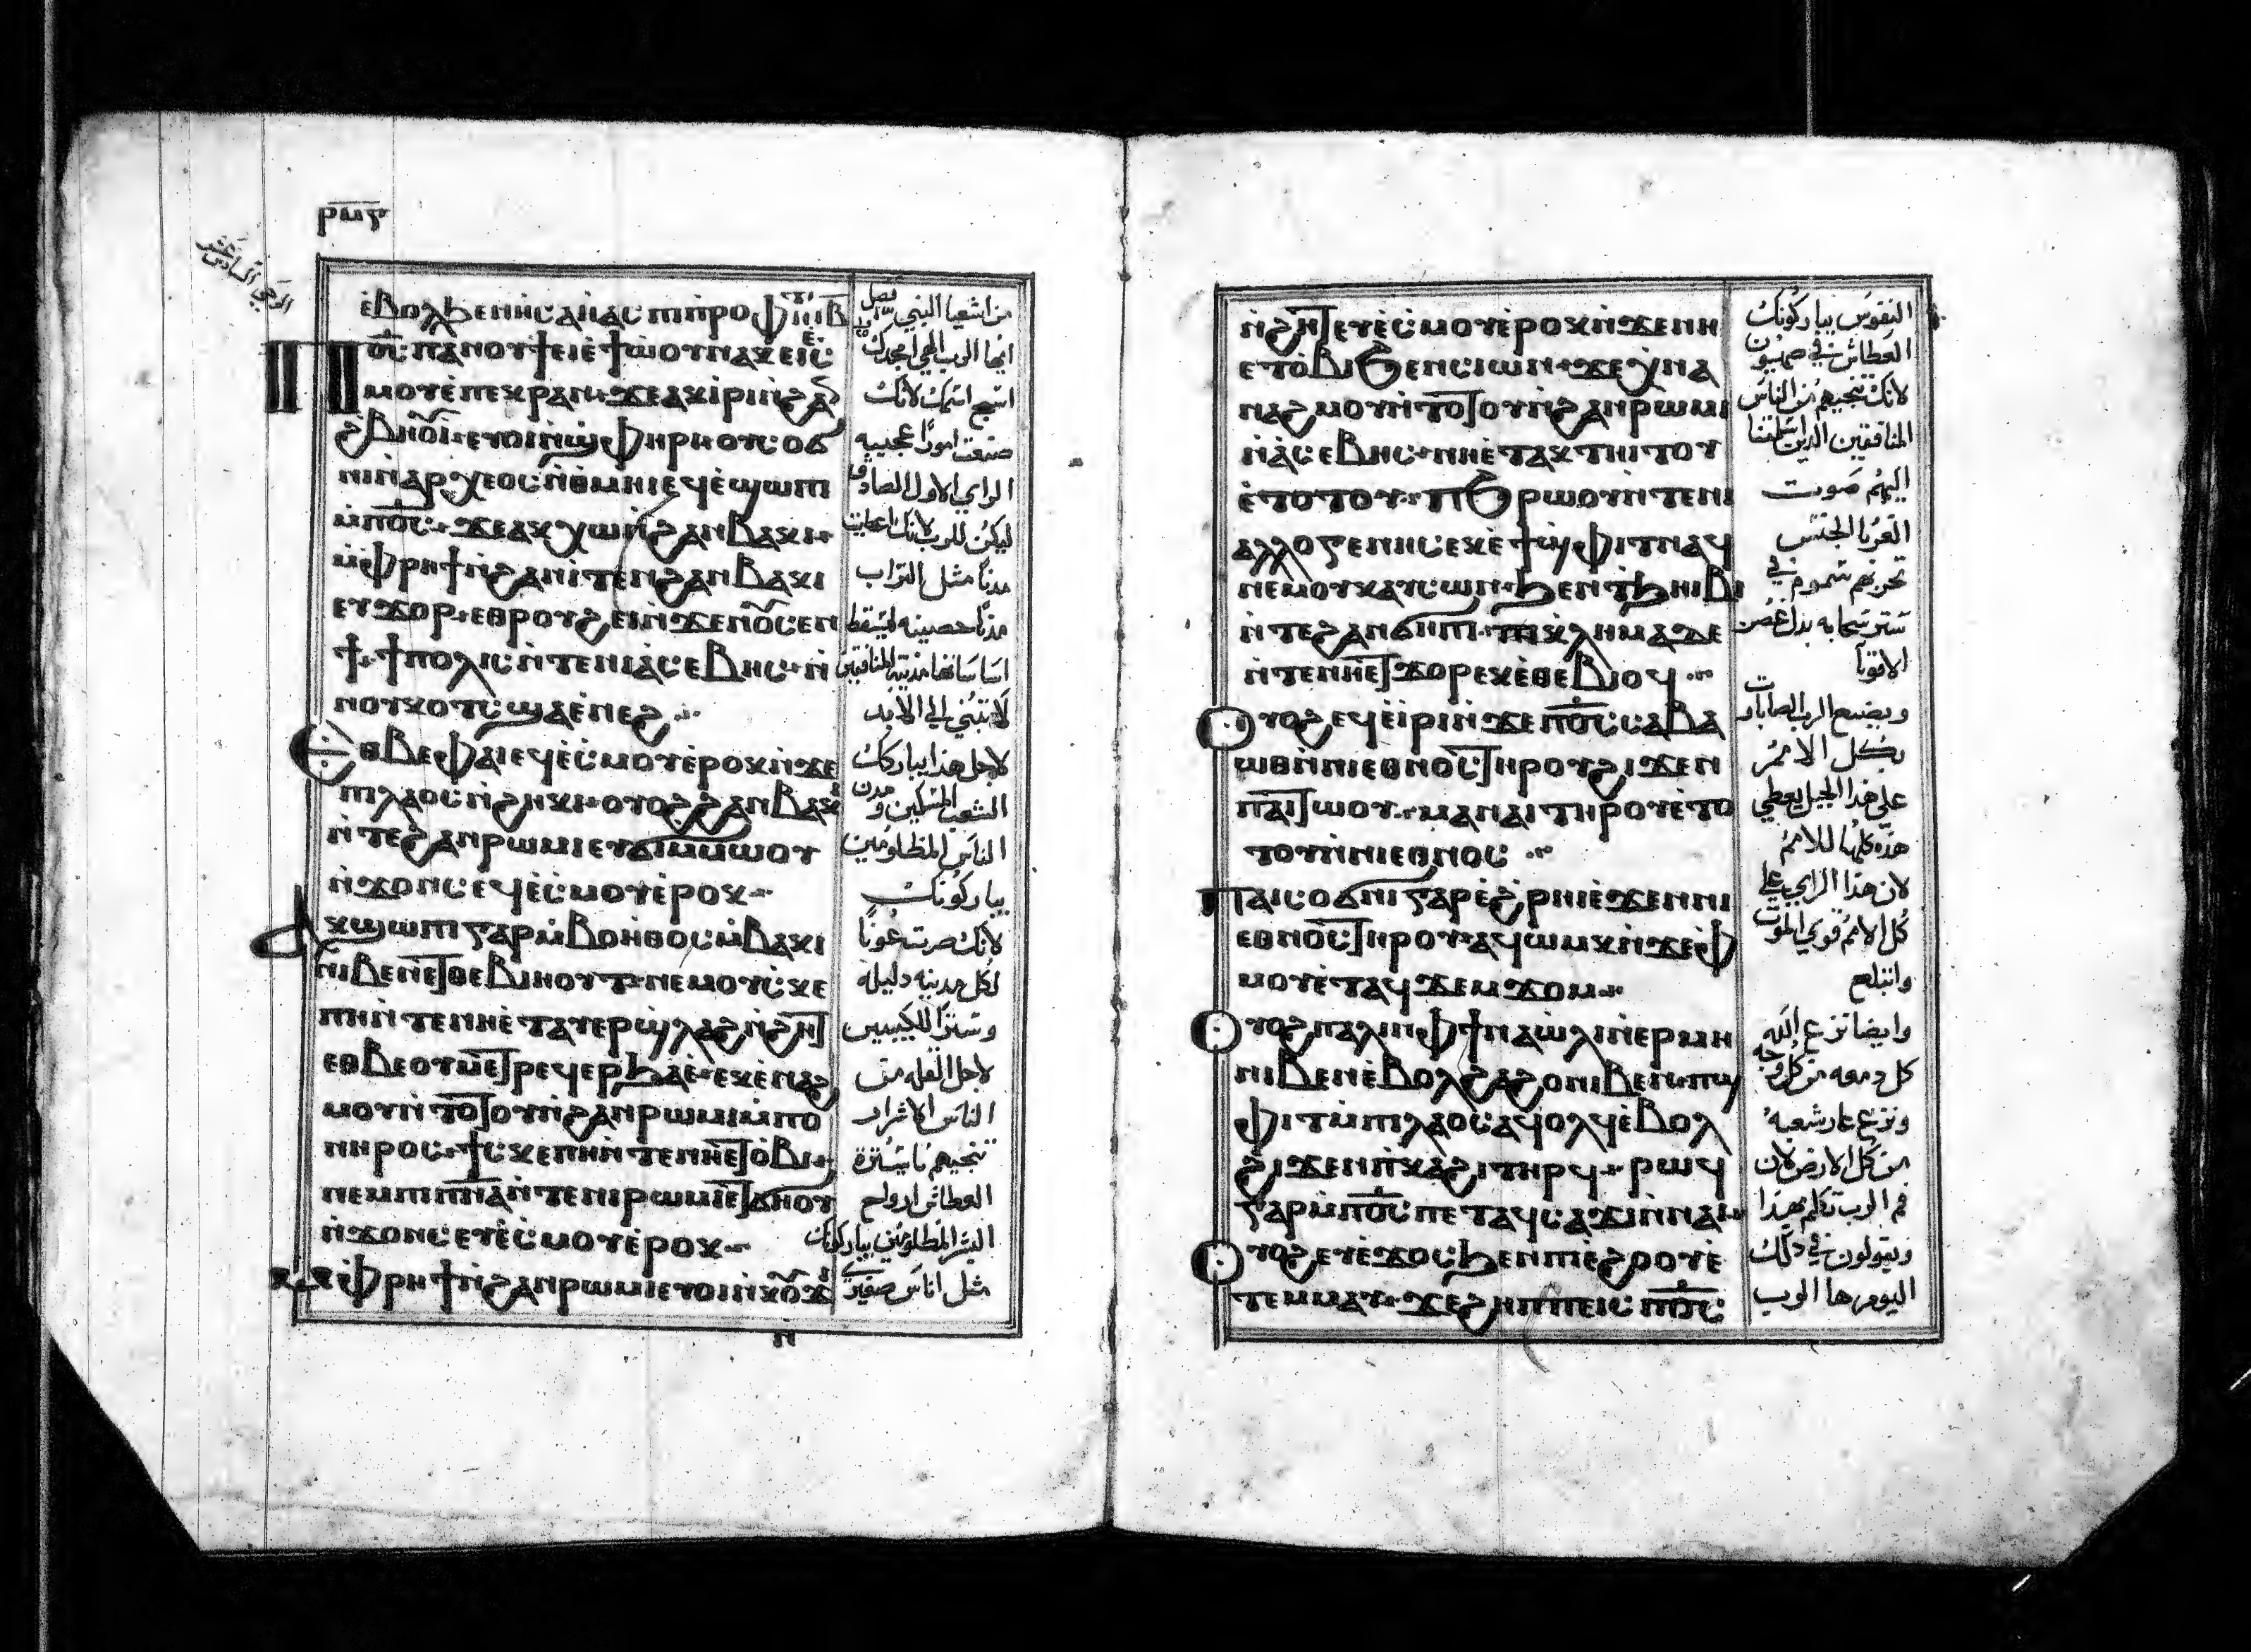 ⲣⲙⲋ
ⲉ̀ⲃⲟⲗϧⲉⲛⲏ̀ⲥⲁⲏ̀ⲁⲥ ⲡⲓⲡ̀ⲣⲟⲫⲏⲧ
ⲡⲟ̅ⲥ̅ ⲡⲁⲛⲟⲩϯ ⲉⲓⲉ̀ϯⲱⲟⲩ ⲛⲁⲕ ⲉⲓⲉ̀ⲥ
ⲙⲟⲩ ⲉ̀ⲡⲉⲕⲣⲁⲛ ϫⲉ ⲁⲕⲓ̀ⲣⲓ ⲛ̀ϩⲁⲛ
ϩⲃⲏⲟⲩⲓ̀ ⲉⲩⲟⲓ ⲛ̀ϣⲫⲏⲣⲓ ⲟⲩⲥⲟϭ
ⲛⲓ ⲛ̀ⲁⲣⲭⲉⲟⲥ ⲛ̀ⲑⲙⲏⲓ ⲉϥⲉ̀ϣⲱⲡⲓ
ⲙ̀ⲡⲟ̅ⲥ̅ ϫⲉ ⲁⲕⲭⲱ ⲛ̀ϩⲁⲛⲃⲁⲕⲓ
ⲙ̀ⲫⲣⲏϯ ⲛ̀ϩⲁⲛⲓ̀ⲧⲉⲛ ϩⲁⲛⲃⲁⲕⲓ
ⲉⲩϫⲟⲣ ⲉⲑⲣⲟⲩϩⲉⲓ ⲛ̀ϫⲉⲛⲟⲩⲥⲉⲛ
ϯ ϯⲡⲟⲗⲓⲥ ⲛ̀ⲧⲉⲛⲓⲁ̀ⲥⲉⲃⲏⲥ ⲛ̀
ⲛⲟⲩⲕⲟⲧⲥ ϣⲁⲉ̀ⲛⲉϩ
ⲉⲑⲃⲉⲫⲁⲓ ⲉϥⲉ̀ⲥⲙⲟⲩ ⲉ̀ⲣⲟⲕ ⲛ̀ϫⲉ
ⲡⲓⲗⲁⲟⲥ ⲛ̀ϩⲏⲕⲓ ⲟⲩⲟϩ ϩⲁⲛⲃⲁⲕⲓ
ⲛ̀ⲧⲉϩⲁⲛⲣⲱⲙⲓ ⲉⲩϭⲓⲙ̀ⲙⲱⲟⲩ
ⲛ̀ϫⲟⲛⲥ ⲉϥⲉ̀ⲥⲙⲟⲩ ⲉ̀ⲣⲟⲕ
ⲁⲕϣⲱⲡⲓ ⲅⲁⲣ ⲙ̀ⲃⲟⲏ̀ⲑⲟⲥ ⲙ̀ⲃⲁⲕⲓ
ⲛⲓⲃⲉⲛ ⲉⲧⲑⲉⲃⲓⲏⲟⲩⲧ ⲛⲉⲙ ⲟⲩⲥ̀ⲕⲉ
ⲡⲏ ⲛ̀ⲧⲉⲛⲏⲉ̀ⲧⲁⲩⲉⲣϣⲗⲁϩ ⲛ̀ϩⲏⲧ
ⲉⲑⲃⲉⲟⲩⲙⲉⲧⲣⲉϥⲉⲣϧⲁⲉ̀ ⲉⲕⲉ̀ⲛⲁϩ
ⲙⲟⲩ ⲛ̀ⲧⲟⲧⲟⲩ ⲛ̀ϩⲁⲛⲣⲱⲙⲓ ⲙ̀ⲡⲟ
ⲛⲏⲣⲟⲥ ϯⲥⲕⲉⲡⲏ ⲛ̀ⲧⲉⲛⲏⲉⲧⲟ̀ⲃⲓ
ⲛⲉⲙ ⲡⲓⲡ̅ⲛ̅ⲁ̅ ⲛ̀ⲧⲉⲛⲓⲣⲱⲙⲓ ⲉⲧϭⲏⲟⲩ
ⲛ̀ϫⲟⲛⲥ ⲉⲩⲉ̀ⲥⲙⲟⲩ ⲉ̀ⲣⲟⲕ
ⲙ̀ⲫⲣⲏϯ ⲛ̀ϩⲁⲛⲣⲱⲙⲓ ⲉⲩⲟⲓ ⲛ̀ⲕⲟⲩϫⲓ
ⲛ
من اشعيا النبي فصل
ايها الرب الهي امجدك
اسبح اسمك لانك
صنعت امورا عجيبه
الراي الاول الصادق
ليكن للرب لانك جعلت
مدنا مثل التراب
مدنا حصينه ليسقط
اساساتها مدينة المنافقين
لا تبتني الي الابد
لاجل هذا يباركك
الشعب المسكين ومدن
الناس المظلومين
يباركونك
لانك صرت عونا
لكل مدينه دليله
وسترا للكييبين
لاجل القله من
الناس الاشرار
تنجيهم ياسترة
العطاش ارواح
البشر المظلومين يباركونك
مثل اناس صغيري
ⲛ̀ϩⲏⲧ ⲉⲩⲉ̀ⲥⲙⲟⲩ ⲉ̀ⲣⲟⲕ ⲛ̀ϫⲉⲛⲏ
ⲉⲧⲟ̀ⲃⲓ ϧⲉⲛⲥⲓⲱⲛ ϫⲉ ⲭ̀ⲛⲁ
ⲛⲁϩⲙⲟⲩ ⲛ̀ⲧⲟⲧⲟⲩ ⲛ̀ϩⲁⲛⲣⲱⲙⲓ
ⲛ̀ⲁ̀ⲥⲉⲃⲏⲥ ⲛⲏⲉ̀ⲧⲁⲕⲧⲏⲓⲧⲟⲩ
ⲉ̀ⲧⲟⲧⲟⲩ ⲡ̀ϧⲣⲱⲟⲩ ⲛ̀ⲧⲉⲛⲓ
ⲁⲗⲗⲟⲅⲉⲛⲏⲥ ⲉⲕⲉ̀ϯϣⲫⲓⲧ ⲛⲁϥ
ⲛⲉⲙ ⲟⲩⲕⲁⲩⲥⲱⲛ ϧⲉⲛϯϧⲏⲓⲃⲓ
ⲛ̀ⲧⲉϩⲁⲛϭⲏⲡⲓ ⲡⲓⲕ̀ⲗⲏⲙⲁ ⲇⲉ
ⲛ̀ⲧⲉⲛⲏⲉⲧϫⲟⲣ ⲉⲕⲉ̀ⲑⲉⲃⲓⲟϥ
ⲟⲩⲟϩ ⲉϥⲉ̀ⲓ̀ⲣⲓ ⲛ̀ϫⲉⲡⲟ̅ⲥ̅ ⲥⲁⲃⲁ
ⲱⲑ ⲛ̀ⲛⲓⲉⲑⲛⲟⲥ ⲧⲏⲣⲟⲩ ϩⲓϫⲉⲛ
ⲡⲁⲓⲧⲱⲟⲩ ⲙⲁ ⲛⲁⲓ ⲧⲏⲣⲟⲩ ⲉ̀ⲧⲟ
ⲧⲟⲩ ⲛ̀ⲛⲓⲉⲑⲛⲟⲥ
ⲡⲁⲓⲥⲟϭⲛⲓ ⲅⲁⲣ ⲉ̀ϩⲣⲏⲓ ⲉ̀ϫⲉⲛⲛⲓ
ⲉⲑⲛⲟⲥ ⲧⲏⲣⲟⲩ ⲁϥⲱⲙⲕ ⲛ̀ϫⲉⲫ
ⲙⲟⲩ ⲉ̀ⲧⲁϥϫⲉⲙϫⲟⲙ
ⲟⲩⲟϩ ⲡⲁⲗⲓⲛ ⲫϯ ⲛⲁⲱ̀ⲗⲓ ⲛ̀ⲉⲣⲙⲏ
ⲛⲓⲃⲉⲛ ⲉ̀ⲃⲟⲗ ϩⲁϩⲟ ⲛⲓⲃⲉⲛ ⲡ̀ϣ
ⲫⲓⲧ ⲙ̀ⲡⲓⲗⲁⲟⲥ ⲁϥⲟⲗϥ ⲉ̀ⲃⲟⲗ
ϩⲓϫⲉⲛⲡ̀ⲕⲁϩⲓ ⲧⲏⲣϥ ⲣⲱϥ
ⲅⲁⲣ ⲙ̀ⲡⲟ̅ⲥ̅ ⲡⲉⲧⲁϥⲥⲁϫⲓ ⲛ̀ⲛⲁⲓ
ⲟⲩⲟϩ ⲉⲩⲉ̀ϫⲟⲥ ϧⲉⲛⲡⲓⲉ̀ϩⲟⲟⲩ ⲉ̀
ⲧⲉⲙⲙⲁⲩ ϫⲉ ϩⲏⲡⲡⲉ ⲓⲥ ⲡⲟ̅ⲥ̅
النفوس يباركونك
العطاش في صهيون
لانك تنجيهم من الناس
المنافقين الذين اسلمتنا
اليهم صوت
الغربا الجنس
تحزنهم سموم في
ستر سحابه بدل غصن
الاقويا
ويصنع الرب الصاباوت
بكل الامم
علي هذا الجبل يعطي
هذه كلها للامم
لان هذا الراي علي
كل الامم قوي الموت
وابتلع
وايضا نزع الله
كل دمعه من كل وجه
ونزع عار شعبه
من كل الارض لان
فم الرب تكلم بهذا
ويقولون في ذلك
اليوم ها الرب